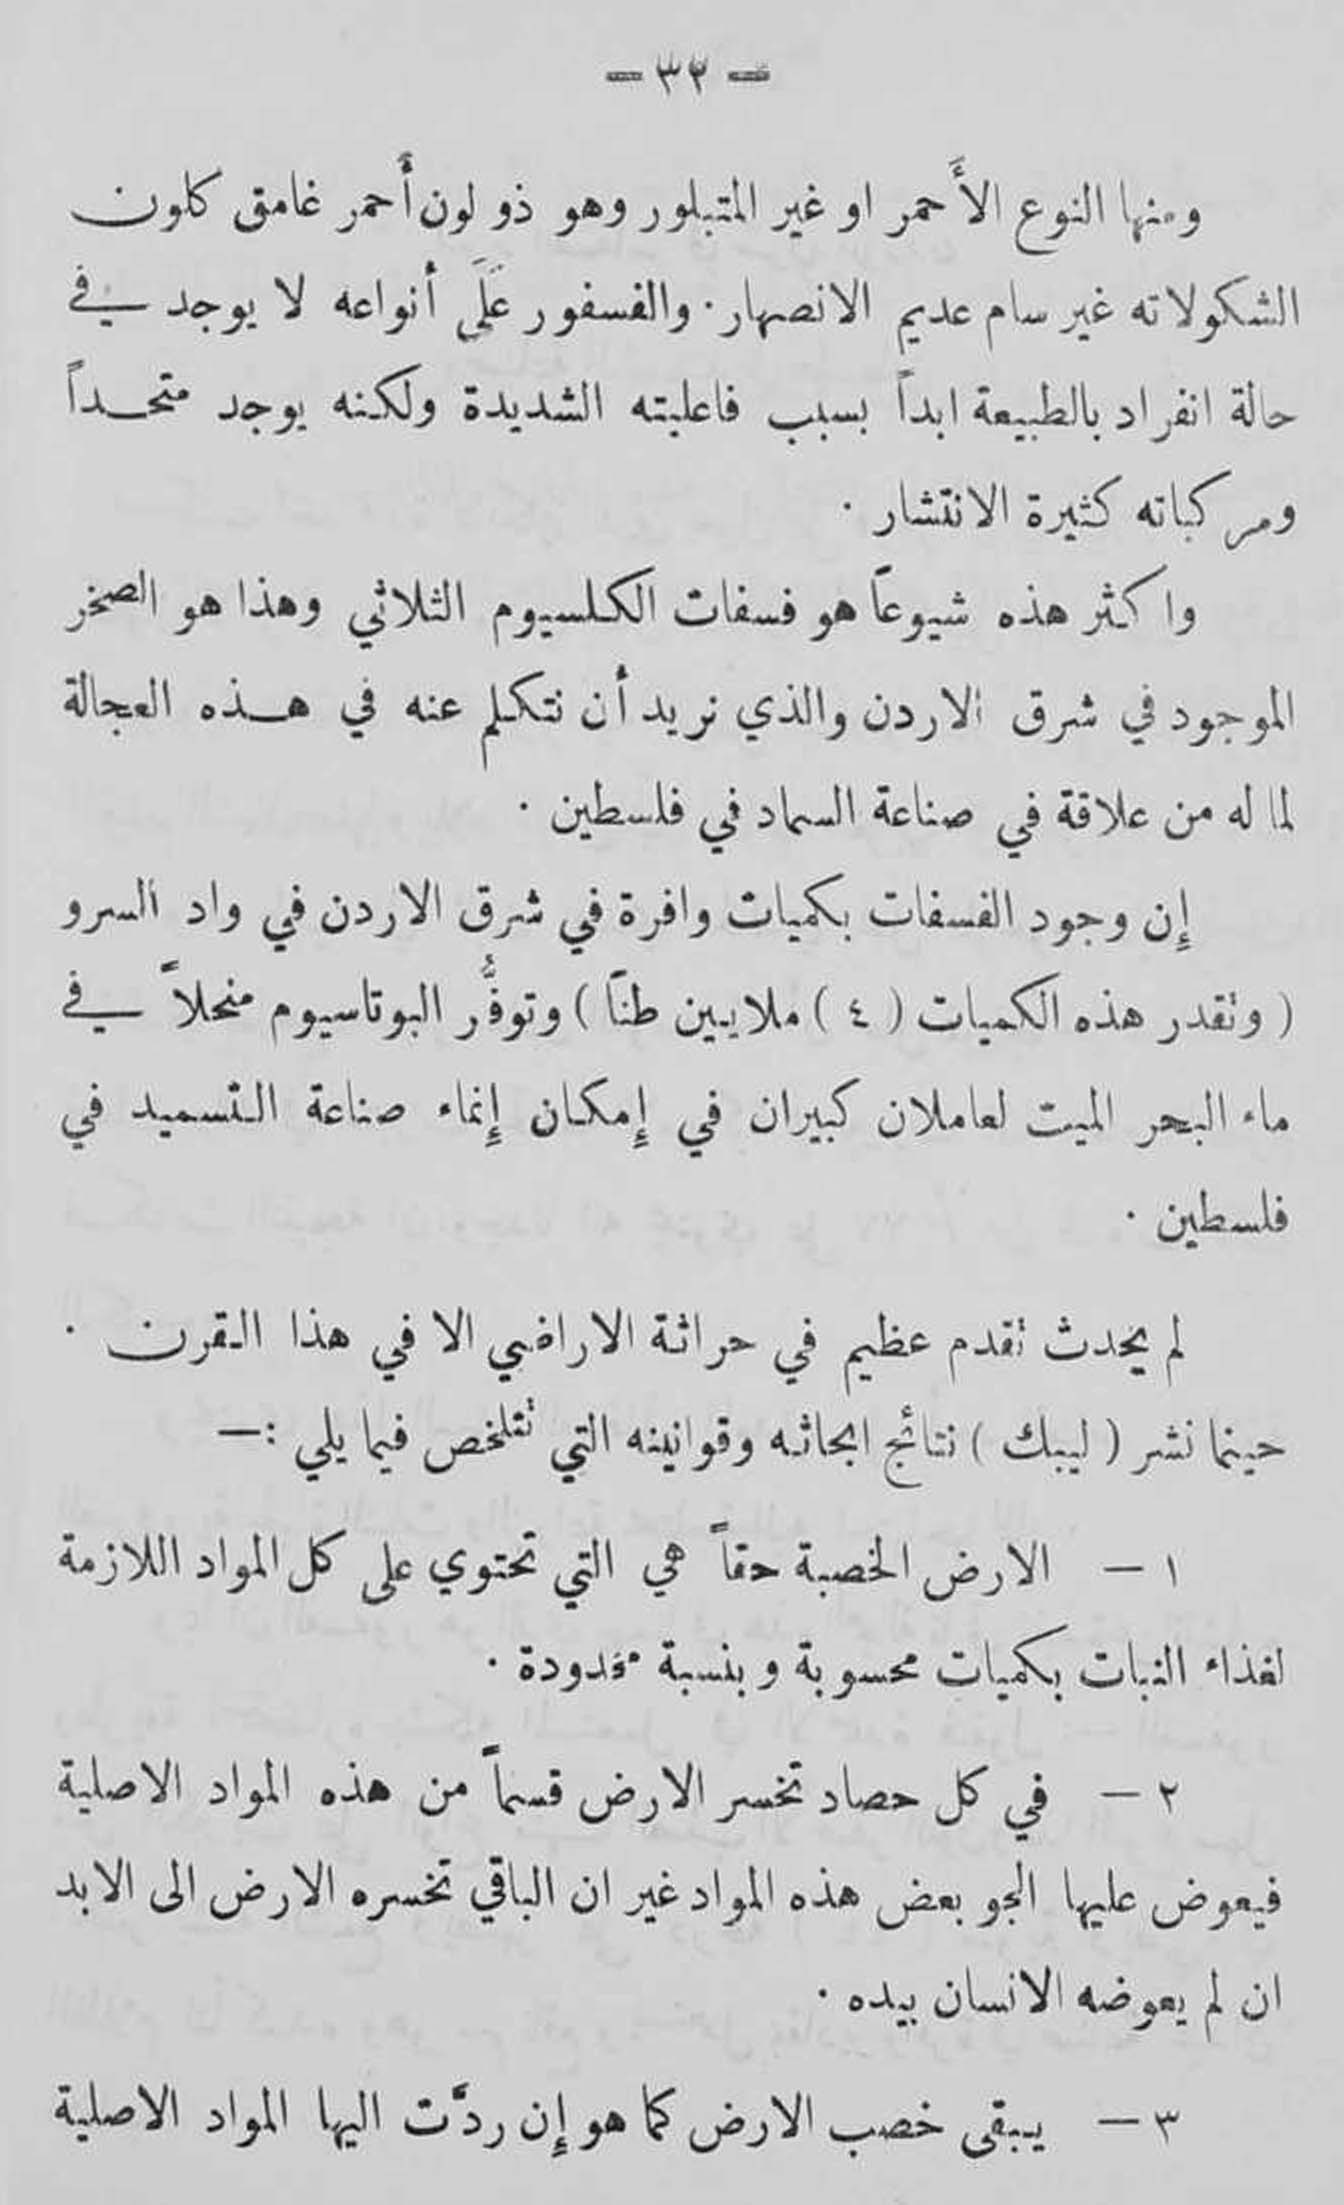 — ٣٢ —
ومنها النوع الأَحمر او غير المتبلور وهو ذو لون أَحمر غامق كلون
الشكولاته غير سام عديم الانصهار . والفسفور عَلَى أنواعه لا يوجد في
حالة انفراد بالطبيعة ابداً بسبب فاعليته الشديدة ولكنه يوجد متحداً
ومركباته كثيرة الانتشار .
واكثر هذه شيوعاً هو فسفات الكلسيوم الثلاثي وهذا هو الصخر
الموجود في شرق الاردن والذي نريد أن نتكلم عنه في هذه العجالة
لما له من علاقة في صناعة السماد في فلسطين .
إِن وجود الفسفات بكميات وافرة في شرق الاردن في واد السرو
( وتقدر هذه الكميات ( ٤ ) ملايين طناً ) وتوفُّر البوتاسيوم منحلاً في
ماء البحر الميت لعاملان كبيران في إِمكان إِنماء صناعة التسميد في
فلسطين .
لم يحدث تقدم عظيم في حراثة الاراضي الا في هذا القرن .
حينما نشر ( ليبك ) نتائج ابحاثه وقوانينه التي تتلخص فيما يلي :—
١ — الارض الخصبة حقاً هي التي تحتوي على كل المواد اللازمة
لغذاء النبات بكميات محسوبة وبنسبة محدودة .
٢ — في كل حصاد تخسر الارض قسماً من هذه المواد الاصلية
فيعوض عليها الجو بعض هذه المواد غير ان الباقي تخسره الارض الى الابد
ان لم يعوضه الانسان بيده .
٣ — يبقى خصب الارض كما هو إِن ردَّت اليها المواد الاصلية